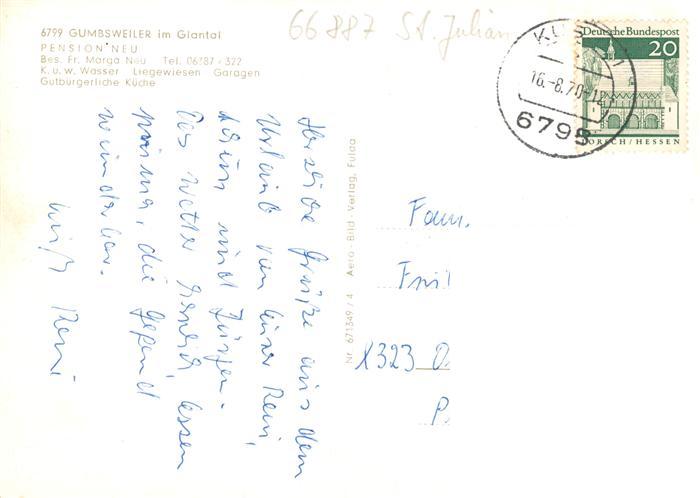 6799 GUMBSWEILER im Glantal
PENSION NEU
Bes. Fr. Marga Neu Tel. 06387 - 322
K. u. w. Wasser Liegewiesen Garagen
Gutbürgerliche Küche
66887 St. Julian
KUS
16.-8.70-12
6798
Deutsche Bundespost
20
LORSCH/HESSEN
Herzliche Grüße aus dem
Urlaub von Eurer Reni,
Achim und Jürgen.
Das Wetter herrlich, Essen
prima, die Gegend
wunderbar.
Reni
Nr. 671349/4 Aero-Bild-Verlag, Fulda
Fam.
X323 O.
P.